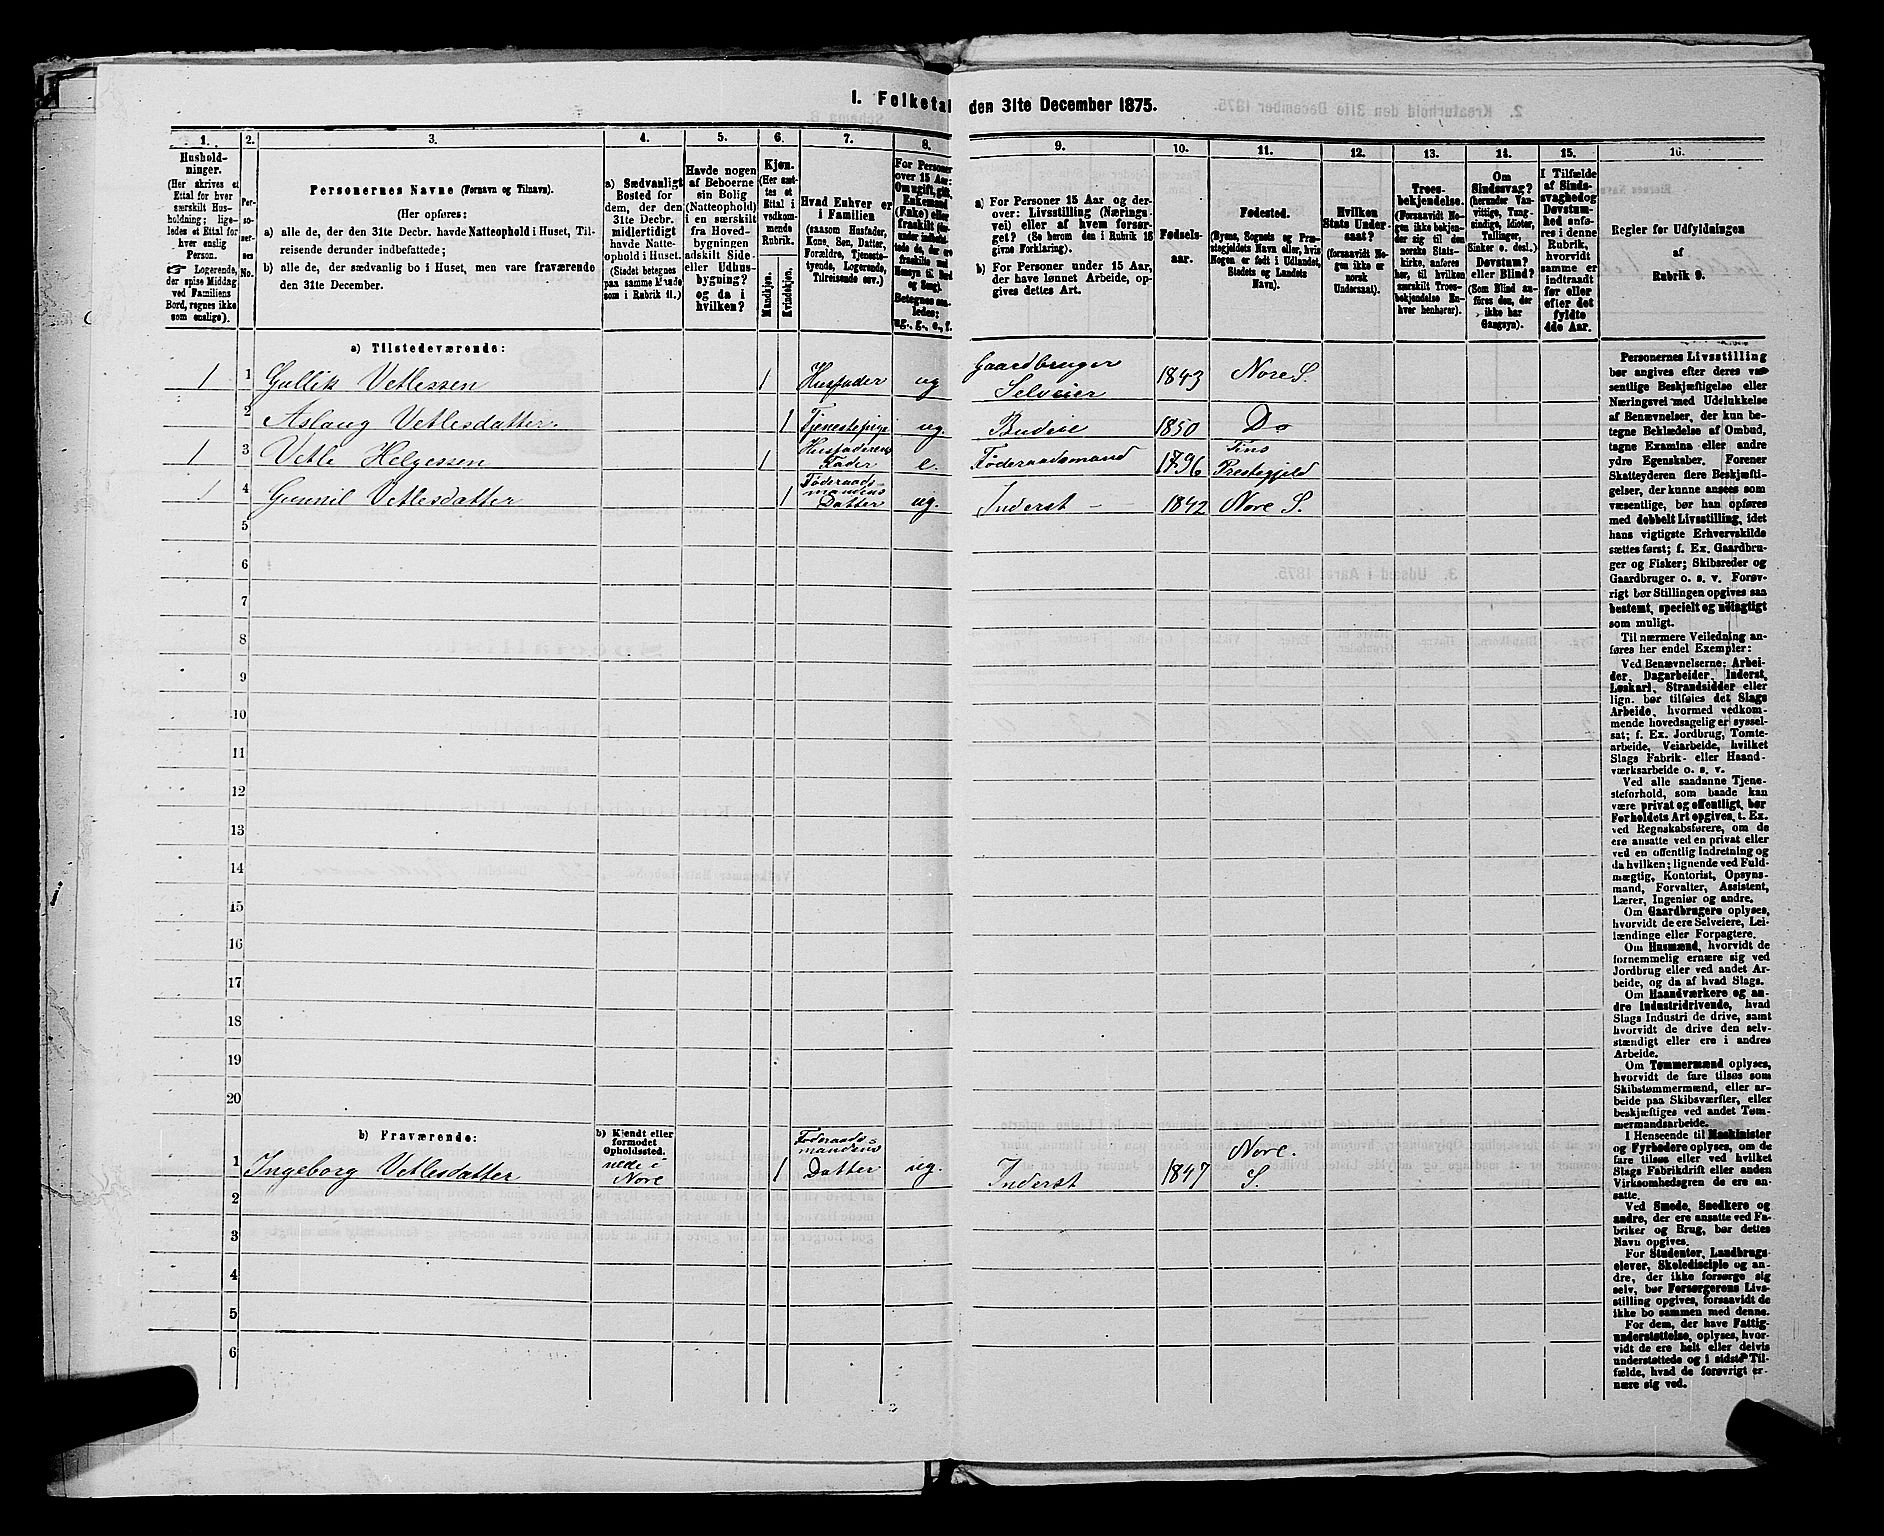 I. Folketal den 31te December 1875.
1. 2. 3. 4. 5. 6. 7. 8. 9. 10. 11. 12. 13. 14. 15. 16.
Hushold-
ninger.
(Her skrives et
Ettal for hver
særskilt Hus-
holdning; lige-
ledes et Ettal for
hver enslig
Person.
☞ Logerende,
der spise Middag
ved Familiens
Bord, regnes ikke
som enslige).
Per-
so-
ner-
nes
No.
Personernes Navne (Fornavn og Tilnavn).
(Her opføres:
a) alle de, der den 31te Decbr. havde Natteophold i Huset, Til-
reisende derunder indbefattede;
b) alle de, der sædvanlig bo i Huset, men vare fraværende
den 31te December.
a) Sædvanligt
Bosted for
dem, der den
31te Decbr.
midlertidigt
havde Natte-
ophold i Huset.
(Stedet betegnes
paa samme Maade
som i Rubrik 11.)
Havde nogen
af Beboerne
sin Bolig
(Natteophold)
i en særskilt
fra Hoved-
bygningen
adskilt Side-
eller Udhus-
bygning?
og da i
hvilken?
Kjøn.
(Her sæt-
tes et
Ettal i
vedkom-
mende
Rubrik.
Mandkjøn.
Kvindekjøn.
Hvad Enhver er
i Familien
(saasom Husfader,
Kone, Søn, Datter,
Forældre, Tjeneste-
tyende, Logerende,
Tilreisende osv.)
For Personer
over 15 Aar:
Om ugift, gift,
Enkemand
(Enke) eller
fraskilt
Betegnes saa-
ledes:
ug., g., e., f.
a) For Personer 15 Aar og der-
over: Livsstilling (Nærings-
vei) eller af hvem forsør-
get? (Se herom den i Rubrik 16
givne Forklaring).
b) For Personer under 15 Aar,
der have lønnet Arbeide, op-
gives dettes Art.
Fødsels-
aar.
Fødested.
(Byens, Sognets og Præ-
stegjeldets Navn eller, hvis
Nogen er født i Udlandet,
Stedets og Landets
Navn).
Hvilken
Stats Under-
saat?
(forsaavidt No-
gen ikke er
norsk
Undersaat).
Troes-
bekjendelse.
(Forsaavidt No-
gen ikke bekjen-
der sig til den
norske Stats-
kirke, anføres
her, til hvilken
særskilt Troes-
bekjendelse En-
hver henhører).
Om
Sindssvag?
(herunder Van-
vittige, Tung-
sindige, Idioter,
Tullinger,
Sinker o. desl.)
Døvstum?
eller Blind?
(Som Blind an-
føres den, der
ikke har
Gangsyn).
I Tilfælde
af Sinds-
svaghed og
Døvstum-
hed anfø-
res i denne
Rubrik,
hvorvidt
samme er
indtraadt
før eller
efter det
fyldte
4de Aar.
Regler for Udfyldningen
af
Rubrik 9.
a) Tilstedeværende:
1 1 Gullik Vetlessen 1 Husfader ug Gaardbruger Selveier 1843 Nore S.
2 Aslaug Vetlesdatter. 1 Tjenestepige ug. Budeie 1850 Do
1 3 Vetle Helgessen 1 Husfaderens Fader e. Føderaadsmand 1796 Tins Prestegjeld
1 4 Gunnil Vetlesdatter 1 Føderaads-mandens Datter ug. Inderst - 1842 Nore S.
5
6
7
8
9
10
11
12
13
14
15
16
17
18
19
20
b) Fraværende:
b) Kjendt eller
formodet
Opholdssted.
1 Ingeborg Vetlesdatter nede i Nore 1 Føderaads-mandens Datter ug. Inderst 1847 Nore. S.
2
3
4
5
6
Personernes Livsstilling
bør angives efter deres væ-
sentlige Beskjæftigelse eller
Næringsvei med Udelukkelse
af Benævnelser, der kun be-
tegne Beklædelse af Ombud,
tagne Examina eller andre
ydre Egenskaber. Forener
Skatteyderen flere Beskjæfti-
gelser, der kunne ansees som
væsentlige, bør han opføres
med dobbelt Livsstilling, idet
hans vigtigste Erhvervskilde
sættes først; f. Ex. Gaardbru-
ger og Fisker; Skibsreder og
Gaardbruger o. s. v. Forøv-
rigt bør Stillingen opgives saa
bestemt, specielt og nøiagtigt
som muligt.
Til nærmere Veiledning an-
føres her endel Exempler:
Ved Benævnelserne: Arbei-
der, Dagarbeider, Inderst,
Løskarl, Strandsidder eller
lign. bør tilføies det Slags
Arbeide, hvormed vedkom-
mende hovedsagelig er syssel-
sat; f. Ex. Jordbrug, Tomte-
arbeide, Veiarbeide, hvilket
Slags Fabrik- eller Haand-
værksarbeide o. s. v.
Ved alle saadanne Tjene-
steforhold, som baade kan
være privat og offentligt, bør
Forholdets Art opgives, t. Ex.
ved Regnskabsførere, om de
ere ansatte ved en privat eller
ved en offentlig Indretning og
da hvilken; lignende ved Fuld-
mægtig, Kontorist, Opsyns-
mand, Forvalter, Assistent,
Lærer, Ingeniør og andre.
Om Gaardbrugere oplyses,
hvorvidt de ere Selveiere, Lei-
lændinge eller Forpagtere.
Om Husmænd, hvorvidt de
fornemmelig ernære sig ved
Jordbrug eller ved andet Ar-
beide, og da af hvad Slags.
Om Haandværkere og an-
dre Industridrivende, hvad
Slags Industri de drive, samt
hvorvidt de drive den selv-
stændigt eller ere i andres
Arbeide.
Om Tømmermænd oplyses,
hvorvidt de fare tilsøs som
Skibstømmermænd, eller ar-
beide paa Skibsværfter, eller
beskjæftiges ved andet Tøm-
mermandsarbeide.
I Henseende til Maskinister
og Fyrbødere oplyses, om de
fare tilsøs eller ved hvilket
Slags Fabrikdrift eller anden
Virksomhedsgren de ere an-
satte.
Ved Smede, Snedkere og
andre, der ere ansatte ved Fa-
briker og Brug, bør dettes
Navn opgives.
For Studenter, Landbrugs-
elever, Skoledisciple og an-
dre, der ikke forsørge sig
selv, bør Forsørgerens Livs-
stilling opgives, forsaavidt de
ikke bo sammen med denne.
For dem, der have Fattig-
understøttelse, oplyses, hvor-
vidt de ere helt eller delvis
understøttede og i sidste Til-
fælde, hvad de forøvrigt er-
nære sig ved.